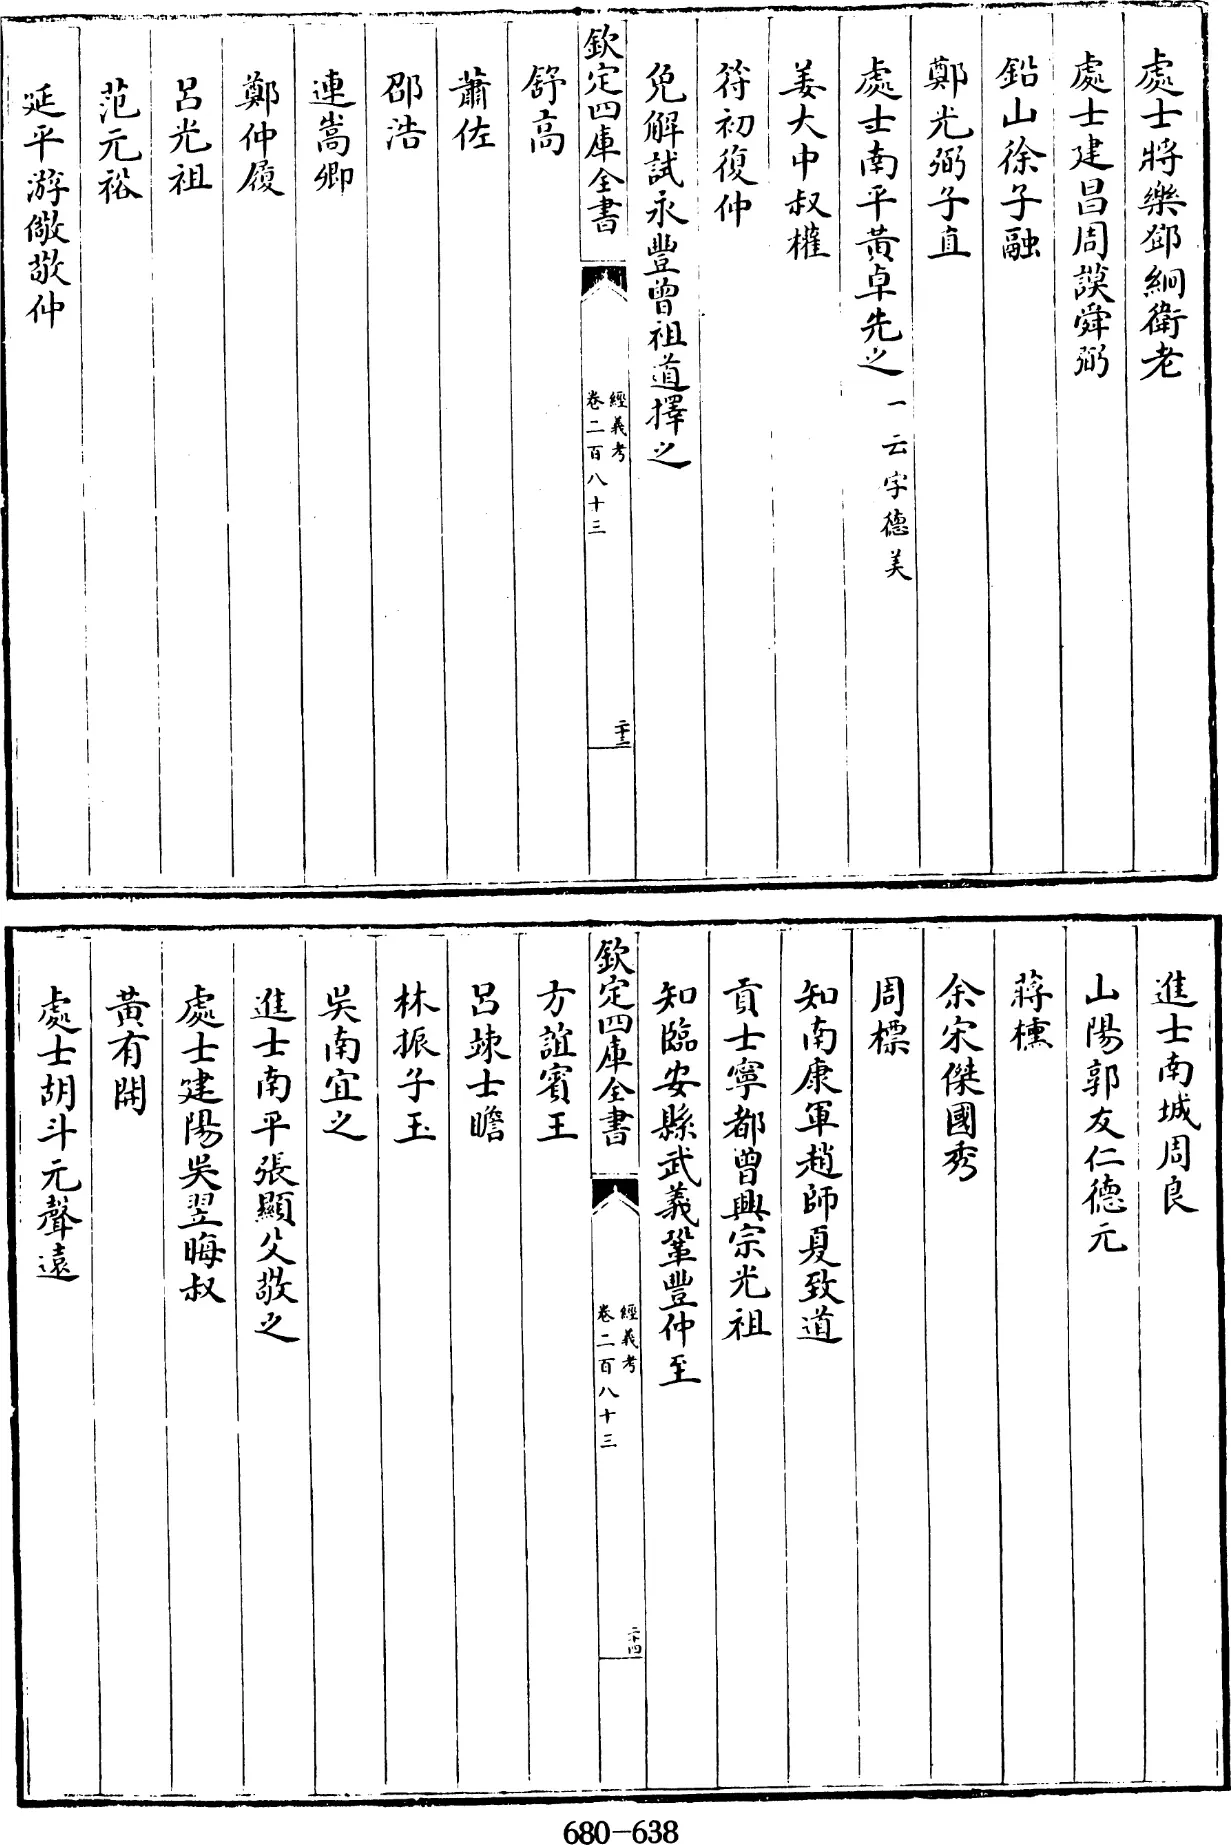 處士將樂鄧絅衛老
處士建昌周謨舜弼
鉛山徐子融
鄭光弼子直
處士南平黃卓先之一云字德美
姜大中叔權
符初復仲
免解試永豐曾祖道擇之
欽定四庫全書
經義考
卷二百八十三
二十三
舒高
蕭佐
邵浩
連嵩卿
鄭仲履
呂光祖
范元裕
延平游儆敬仲
進士南城周良
山陽郭友仁德元
蔣櫄
余宋傑國秀
周標
知南康軍趙師夏致道
貢士寧都曾興宗光祖
知臨安縣武義鞏豐仲至
欽定四庫全書
經義考
卷二百八十三
二十四
方誼賓王
呂竦士瞻
林振子玉
吳南宜之
進士南平張顯父敬之
處士建陽吳翌晦叔
黃有開
處士胡斗元聲遠
680-638